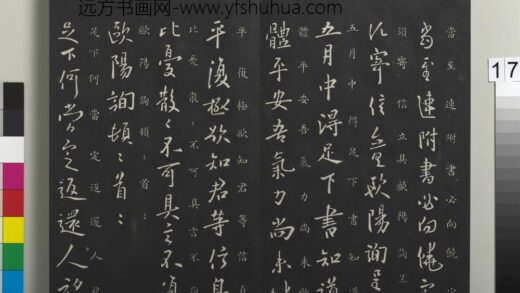 远方书画网-www.yfshuhua.com
17
當至速附書必向饒
當至速附書必向饒
須寧信立具歐陽詢呈
須寧信立具歐陽詢呈
五月中得足下書知道
五月中得足下書知道
體平安吾氣力尚未
體平安吾氣力尚未
平復極欲知君等信息
平復極欲知君等信息
比憂散:不可具言不
比憂散:不可具言不
歐陽詢頓:首:
歐陽詢頓:首:
足下何當定返還人
足下何當定返還人